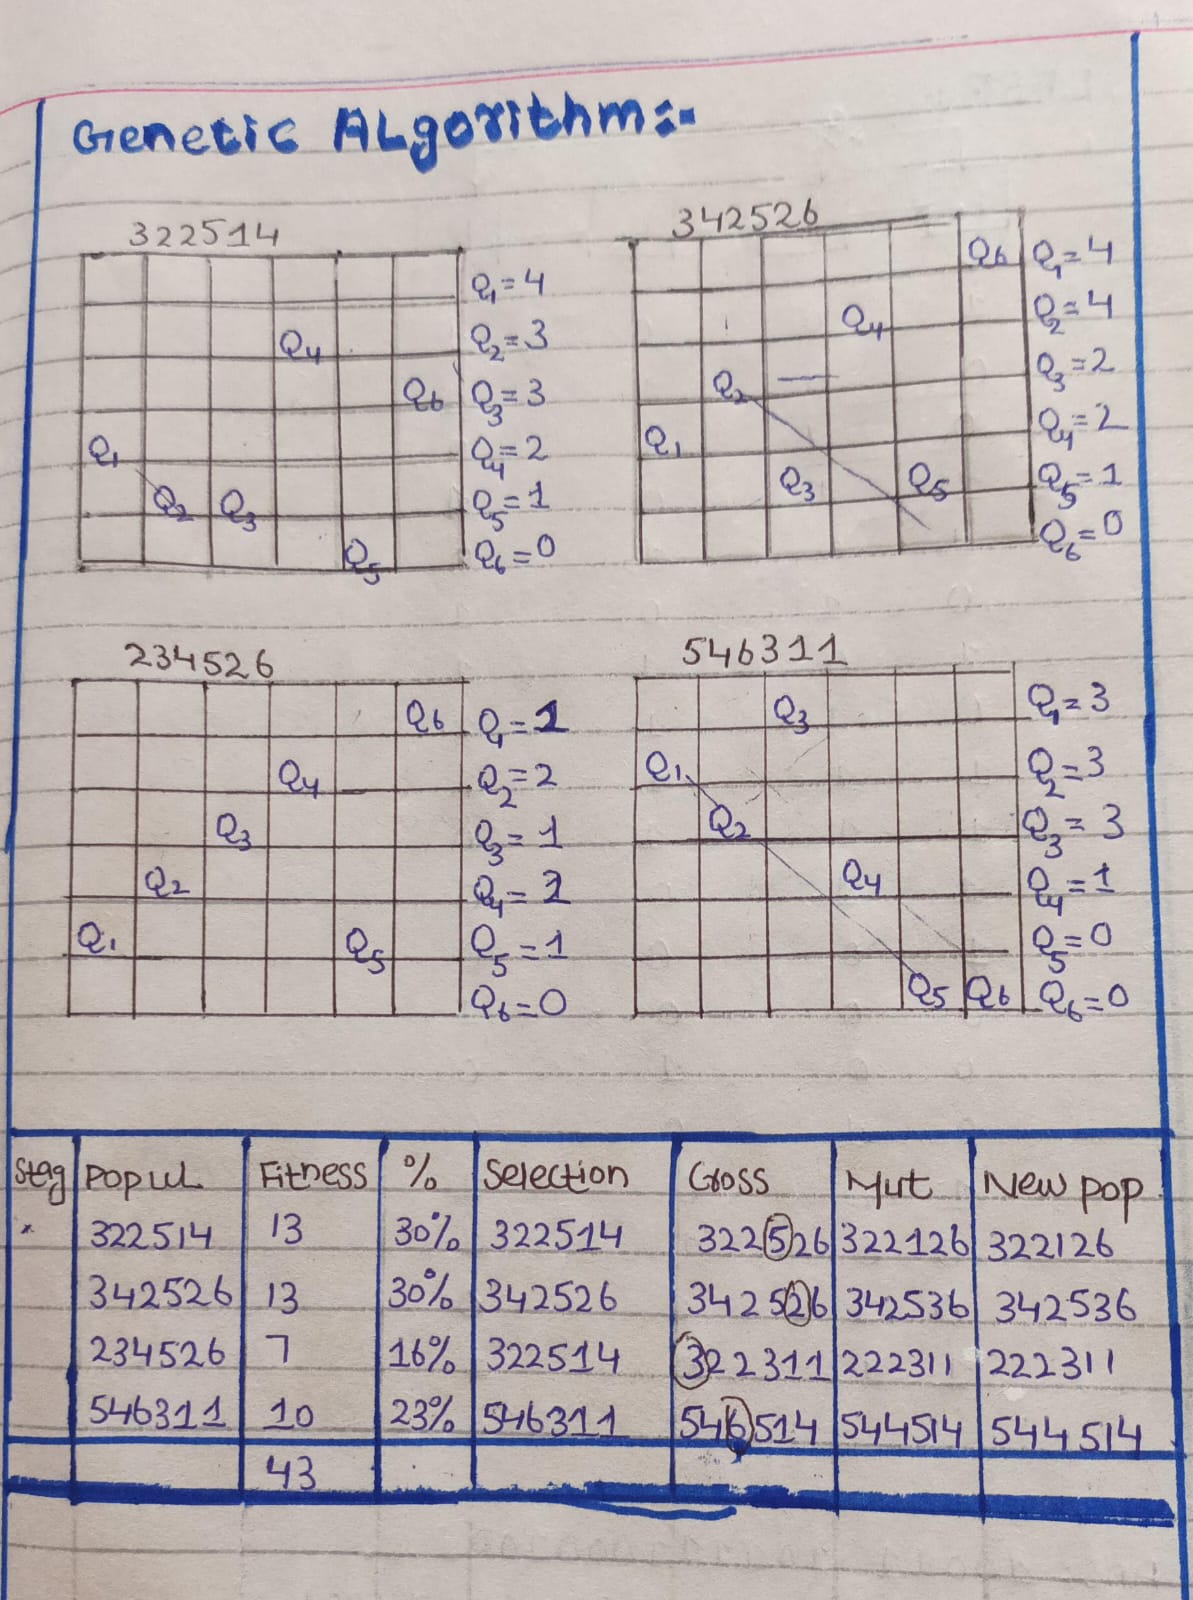 Genetic Algorithm:-
322514
Q4
Q6
Q1
Q2 Q3
Q5
Q1=4
Q2=3
Q3=3
Q4=2
Q5=1
Q6=0
342526
Q6
Q4
Q2
Q1
Q3 Q5
Q1=4
Q2=4
Q3=2
Q4=2
Q5=1
Q6=0
234526
Q6
Q4
Q3
Q2
Q1 Q5
Q1=1
Q2=2
Q3=1
Q4=2
Q5=1
Q6=0
546311
Q3
Q1
Q2
Q4
Q5 Q6
Q1=3
Q2=3
Q3=3
Q4=1
Q5=0
Q6=0
Stag Popul Fitness % Selection Cross Mut New pop
322514 13 30% 322514 322526 322126 322126
342526 13 30% 342526 342526 342536 342536
234526 7 16% 322514 322311 222311 222311
546311 10 23% 546311 546514 544514 544514
43